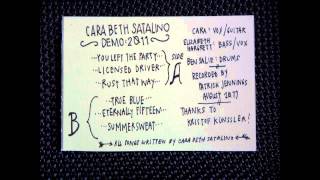 CARA BETH SATALINO
DEMO: 2011
SIDE A
...YOU LEFT THE PARTY...
...LICENSED DRIVER...
...RUST THAT WAY...
B
...TRUE BLUE...
...ETERNALLY FIFTEEN...
...SUMMERSWEAT...
CARA: VOX/GUITAR
ELIZABETH
HARGRETT: BASS/VOX
BEN SALIE: DRUMS
RECORDED BY
PATRICK JENNINGS
AUGUST 2011
THANKS TO
KRISTOF KÜNSSLER!
ALL SONGS WRITTEN BY CARA BETH SATALINO